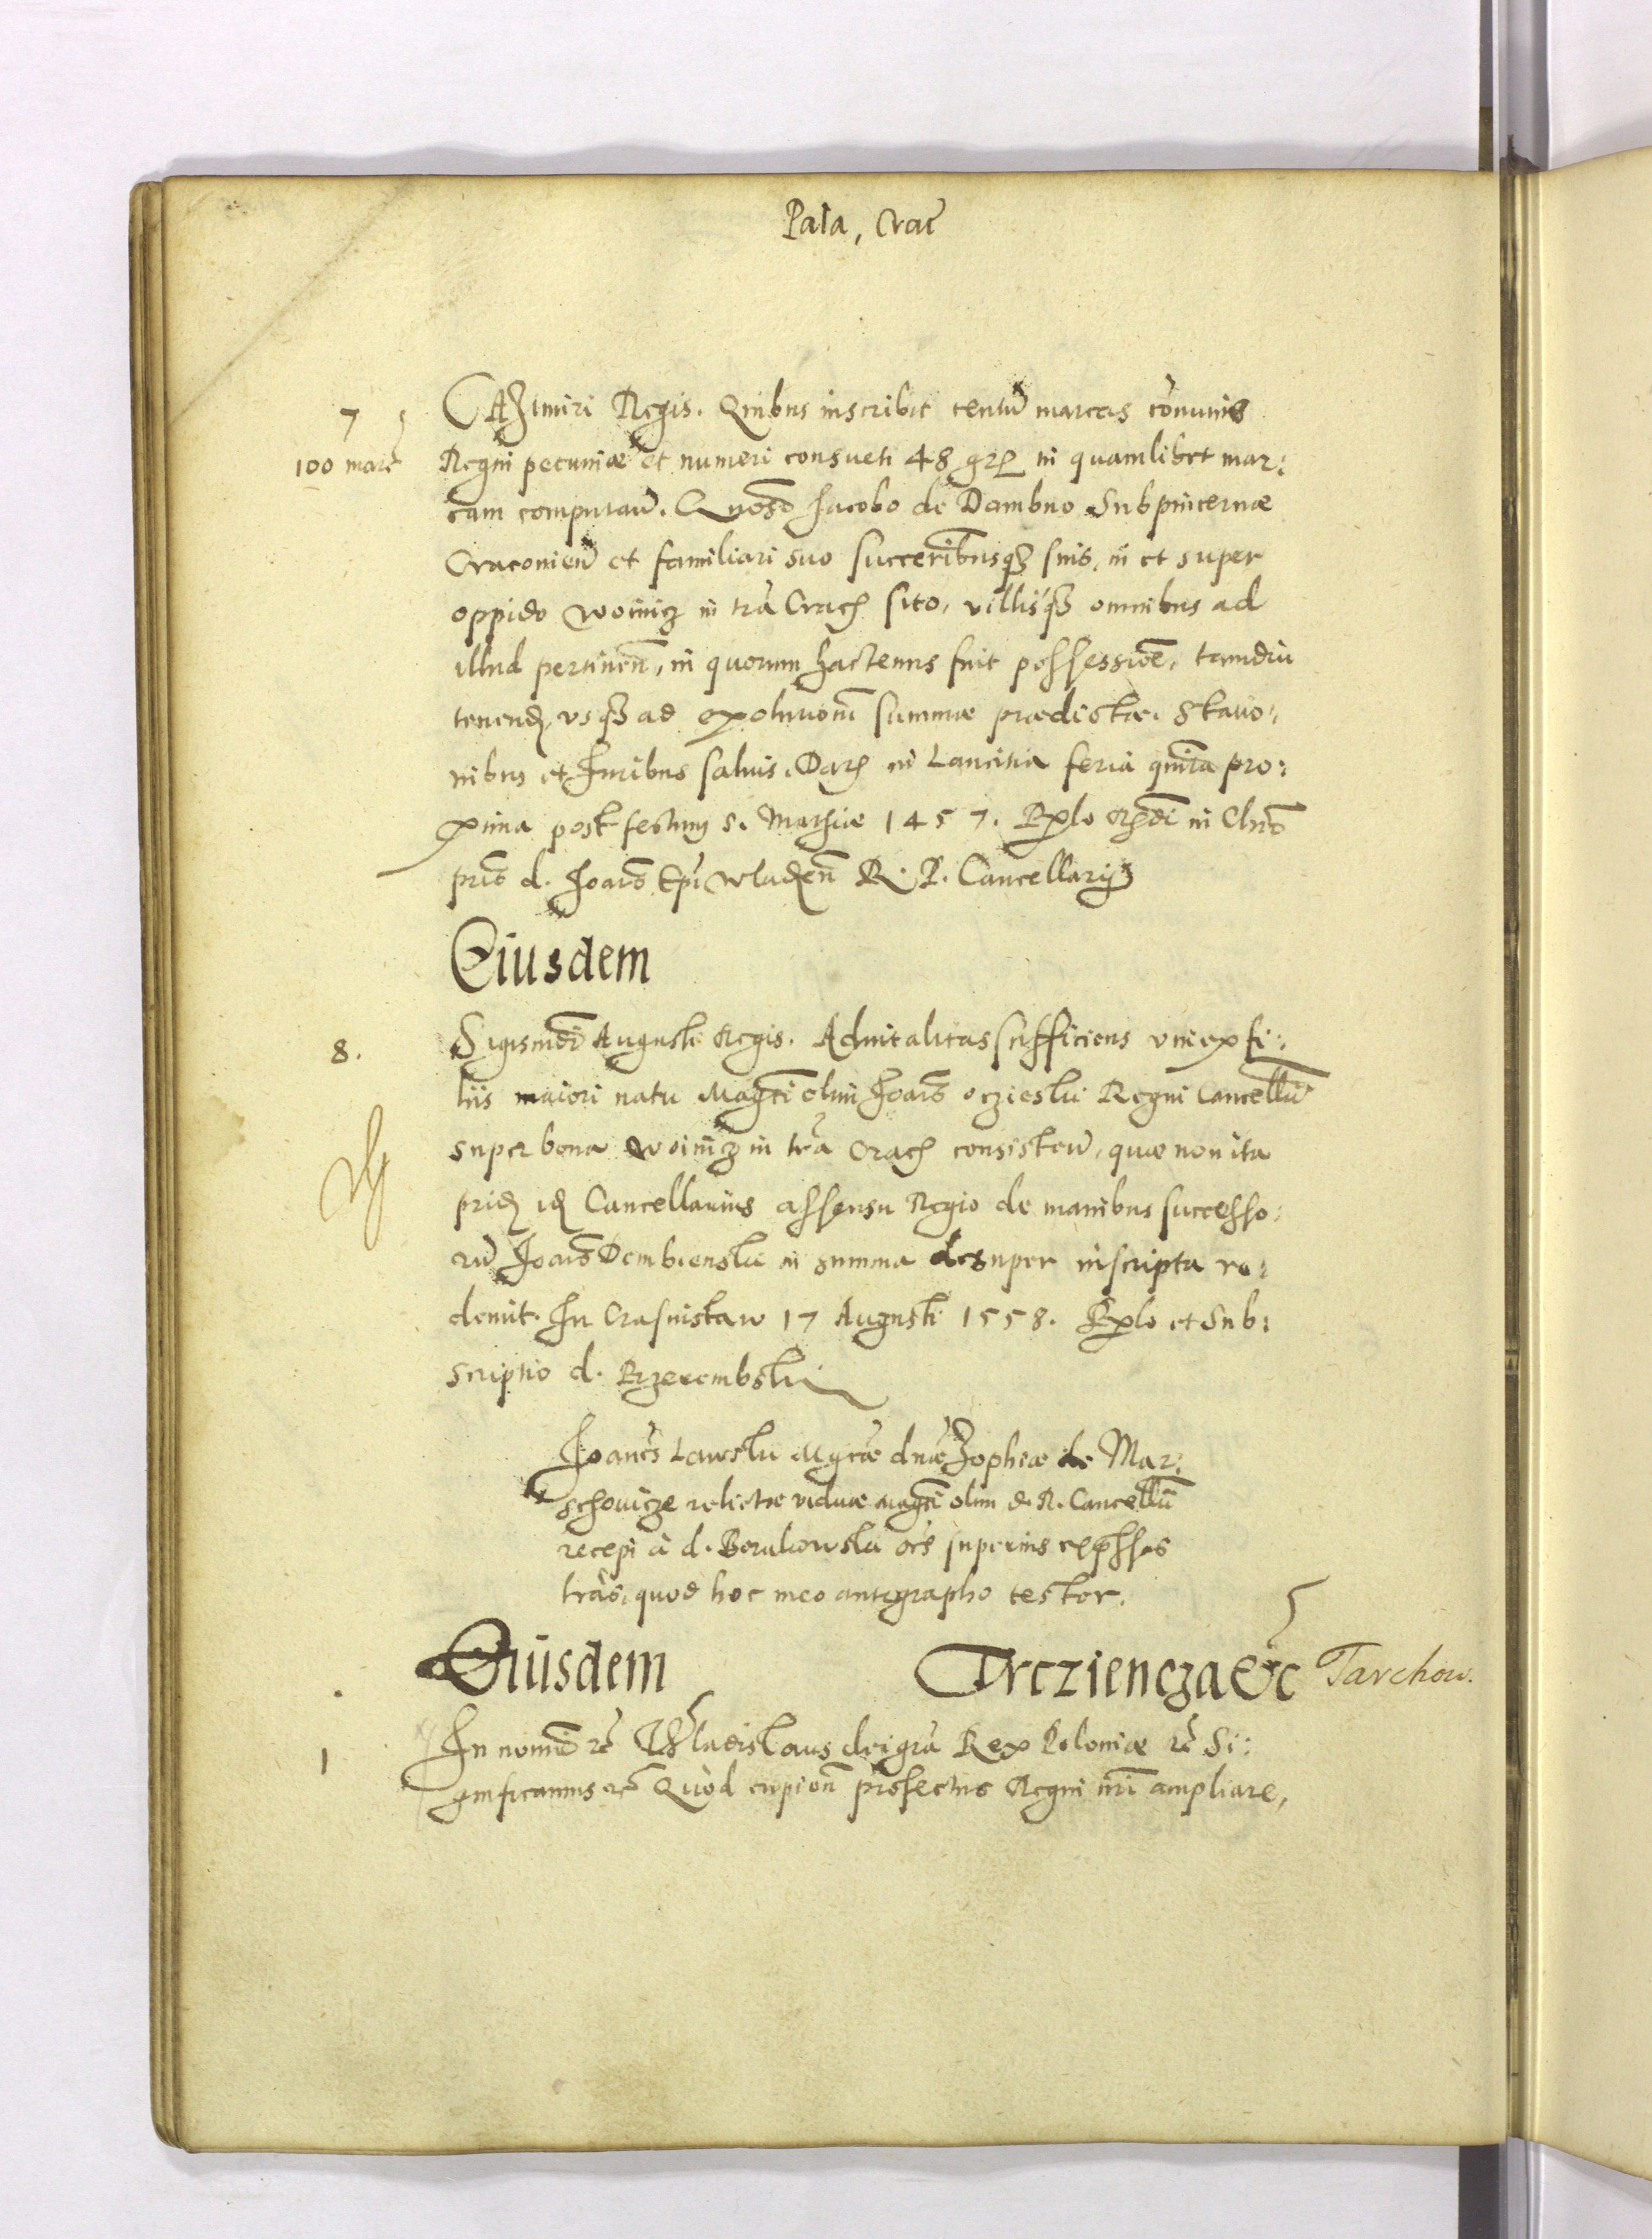 Pala, Crac
7
CAzimiri Regis. Quibus inscribit centu marcas comunis
100 marc
Regni pecuniæ et numeri consueti 48 gr in quamlibet mar:
cam computan. Quos Jacobo de Dambno Subpincernæ
Cracovien et familiari suo successoribusq suis, in et super
oppido Woinicz in tra Crac sito, villisq omnibus ad
illud pertinen, in quorum hactenus fuit possessioe, tamdiu
tenend, usq ad exolutionem summæ prædictæ. Statio:
nibus et Juribus salvis. Dat in Lancitia feria quinta pro:
xima post festum S. Mathiæ 1457. Rela Rndi in Chro
pris d. Joanis Epi Wladen R. P. Cancellarij
Eiusdem
8.
Sigismdi Augusti Regis. Advitalitas sufficiens uni ex fi:
liis maiori natu Magci olim Joanis Oczieski Regni Cancellarii
super bona Woinicz in tra Crac consisten, quæ non ita
prid id Cancellarius assensu Regio de manibus successo:
ru Joanis Dembienski in summa desuper inscripta re:
demit. In Crasnistaw 17 Augusti 1558. Rela et Sub:
scriptio d. Przerembski
Joanes Lawski Mgcæ dnæ Zophiæ de Mar:
schovicze relictæ viduæ Magci olim d. R. Cancellarii
recepi à d. Borukowski oes superius expssas
tras, quod hoc meo autographo testor.
Eiusdem Trcziencza etc Tarchow.
1
In nomine etc Wladislaus dei gra Rex Poloniæ etc Si:
gnificamus etc Quod cupien profectus Regni nri ampliare,